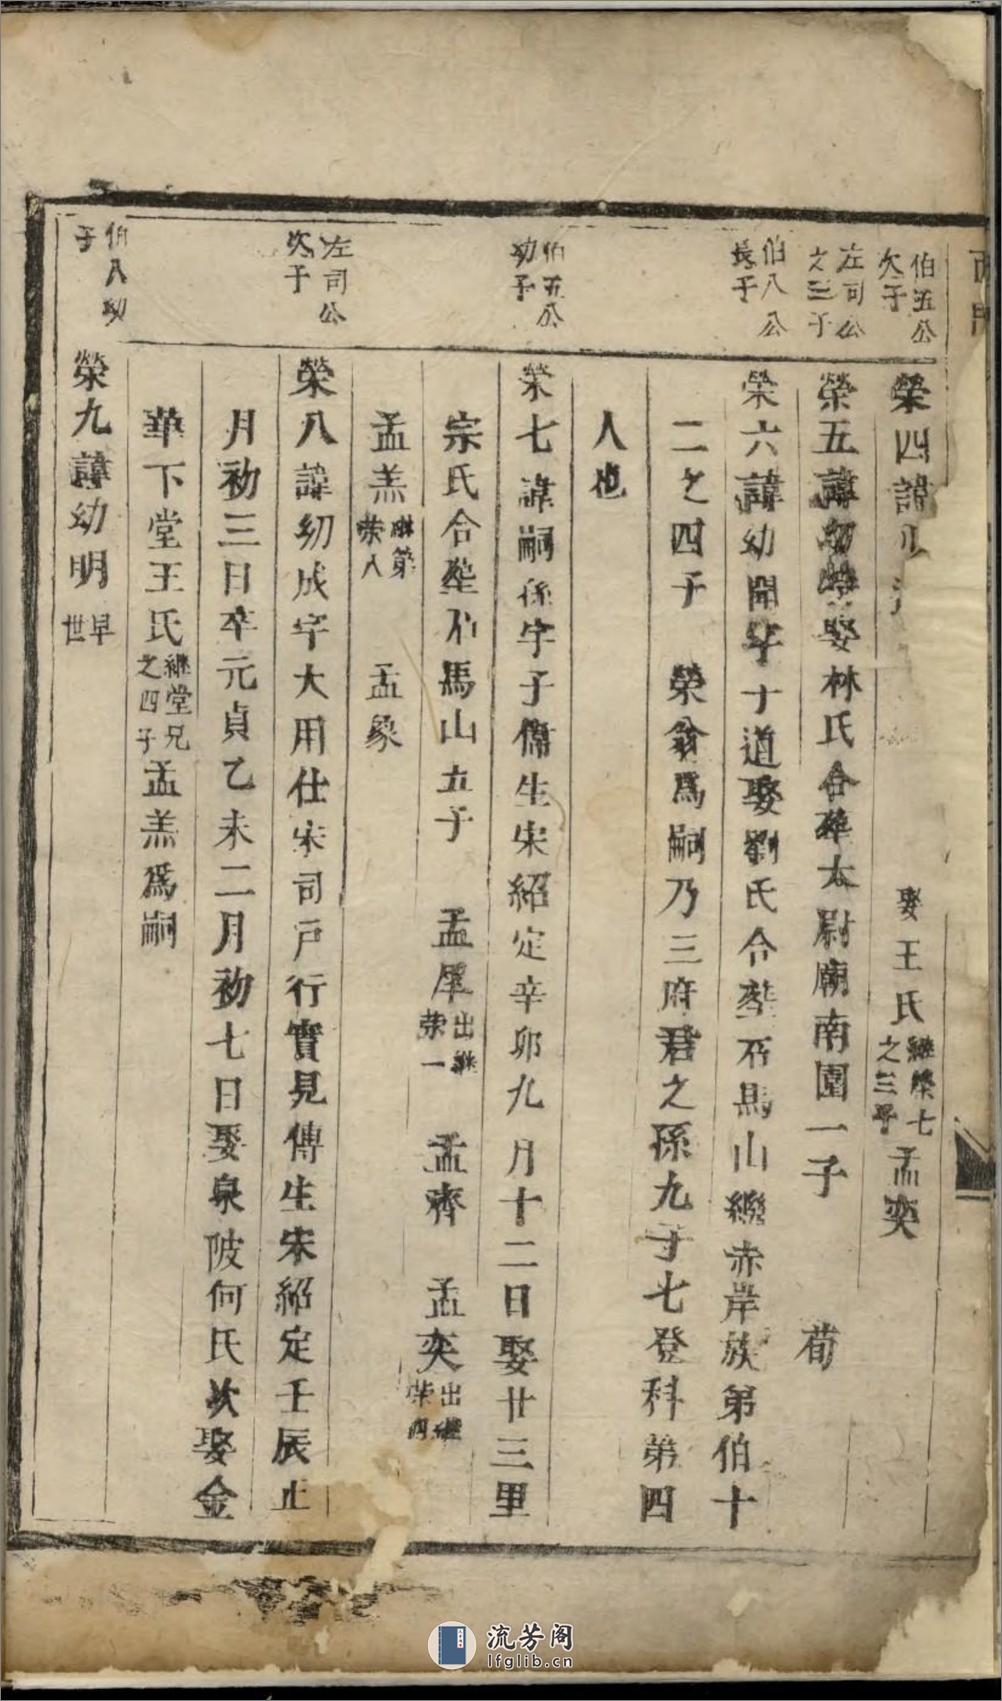 伯五公次子
榮四諱
娶王氏繼榮七之三子孟奕
左司公之三子
榮五諱幼學娶林氏合葬太尉廟南園一子 荀
伯八公長子
榮六諱幼開字十道娶劉氏合葬石馬山繼赤岸族第伯十
二之四子 榮翁為嗣乃三府君之孫九子七登科第四
人也
伯五公幼子
榮七諱嗣孫字子儒生宋紹定辛卯九月十二日娶廿三里
宗氏合葬石馬山五子 孟犀出繼榮一 孟齊 孟奕出繼榮四
孟羔繼第榮八 孟象
左司公次子
榮八諱幼成字大用仕宋司戸行實見傳生宋紹定壬辰正
月初三日卒元貞乙未二月初七日娶泉陂何氏次娶金
華下堂王氏繼堂兄之四子孟羔爲嗣
伯八幼子
榮九諱幼明早世
流芳阁
lfglib.cn